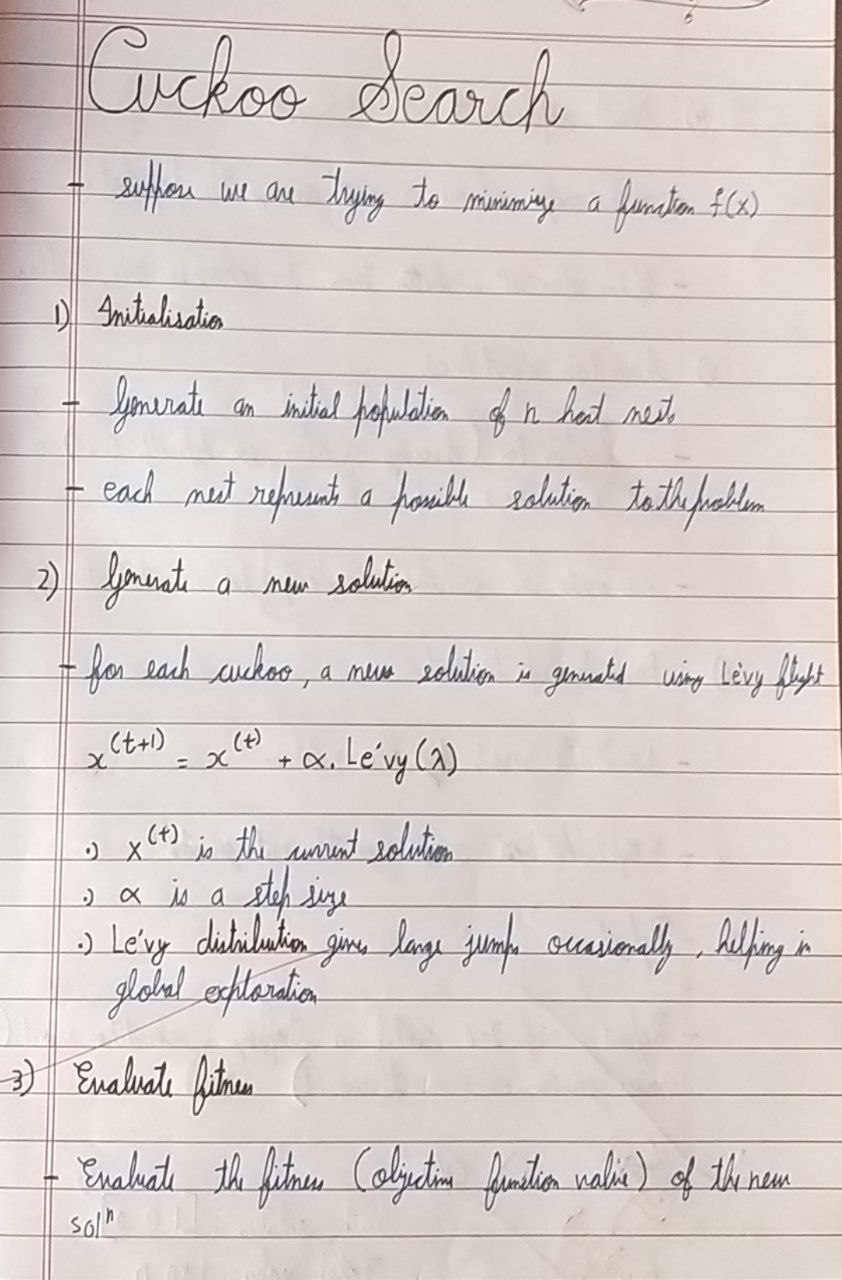 Cuckoo Search
- suppose we are trying to minimize a function f(x)
1) Initialisation
- Generate an initial population of n host nests
- each nest represents a possible solution to the problem
2) Generate a new solution
- for each cuckoo, a new solution is generated using Lévy flight
x^(t+1) = x^(t) + α. Lévy(λ)
.) x^(t) is the current solution
.) α is a step size
.) Lévy distribution gives large jumps occasionally, helping in
global exploration
3) Evaluate fitness
- Evaluate the fitness (objective function value) of the new
solⁿ